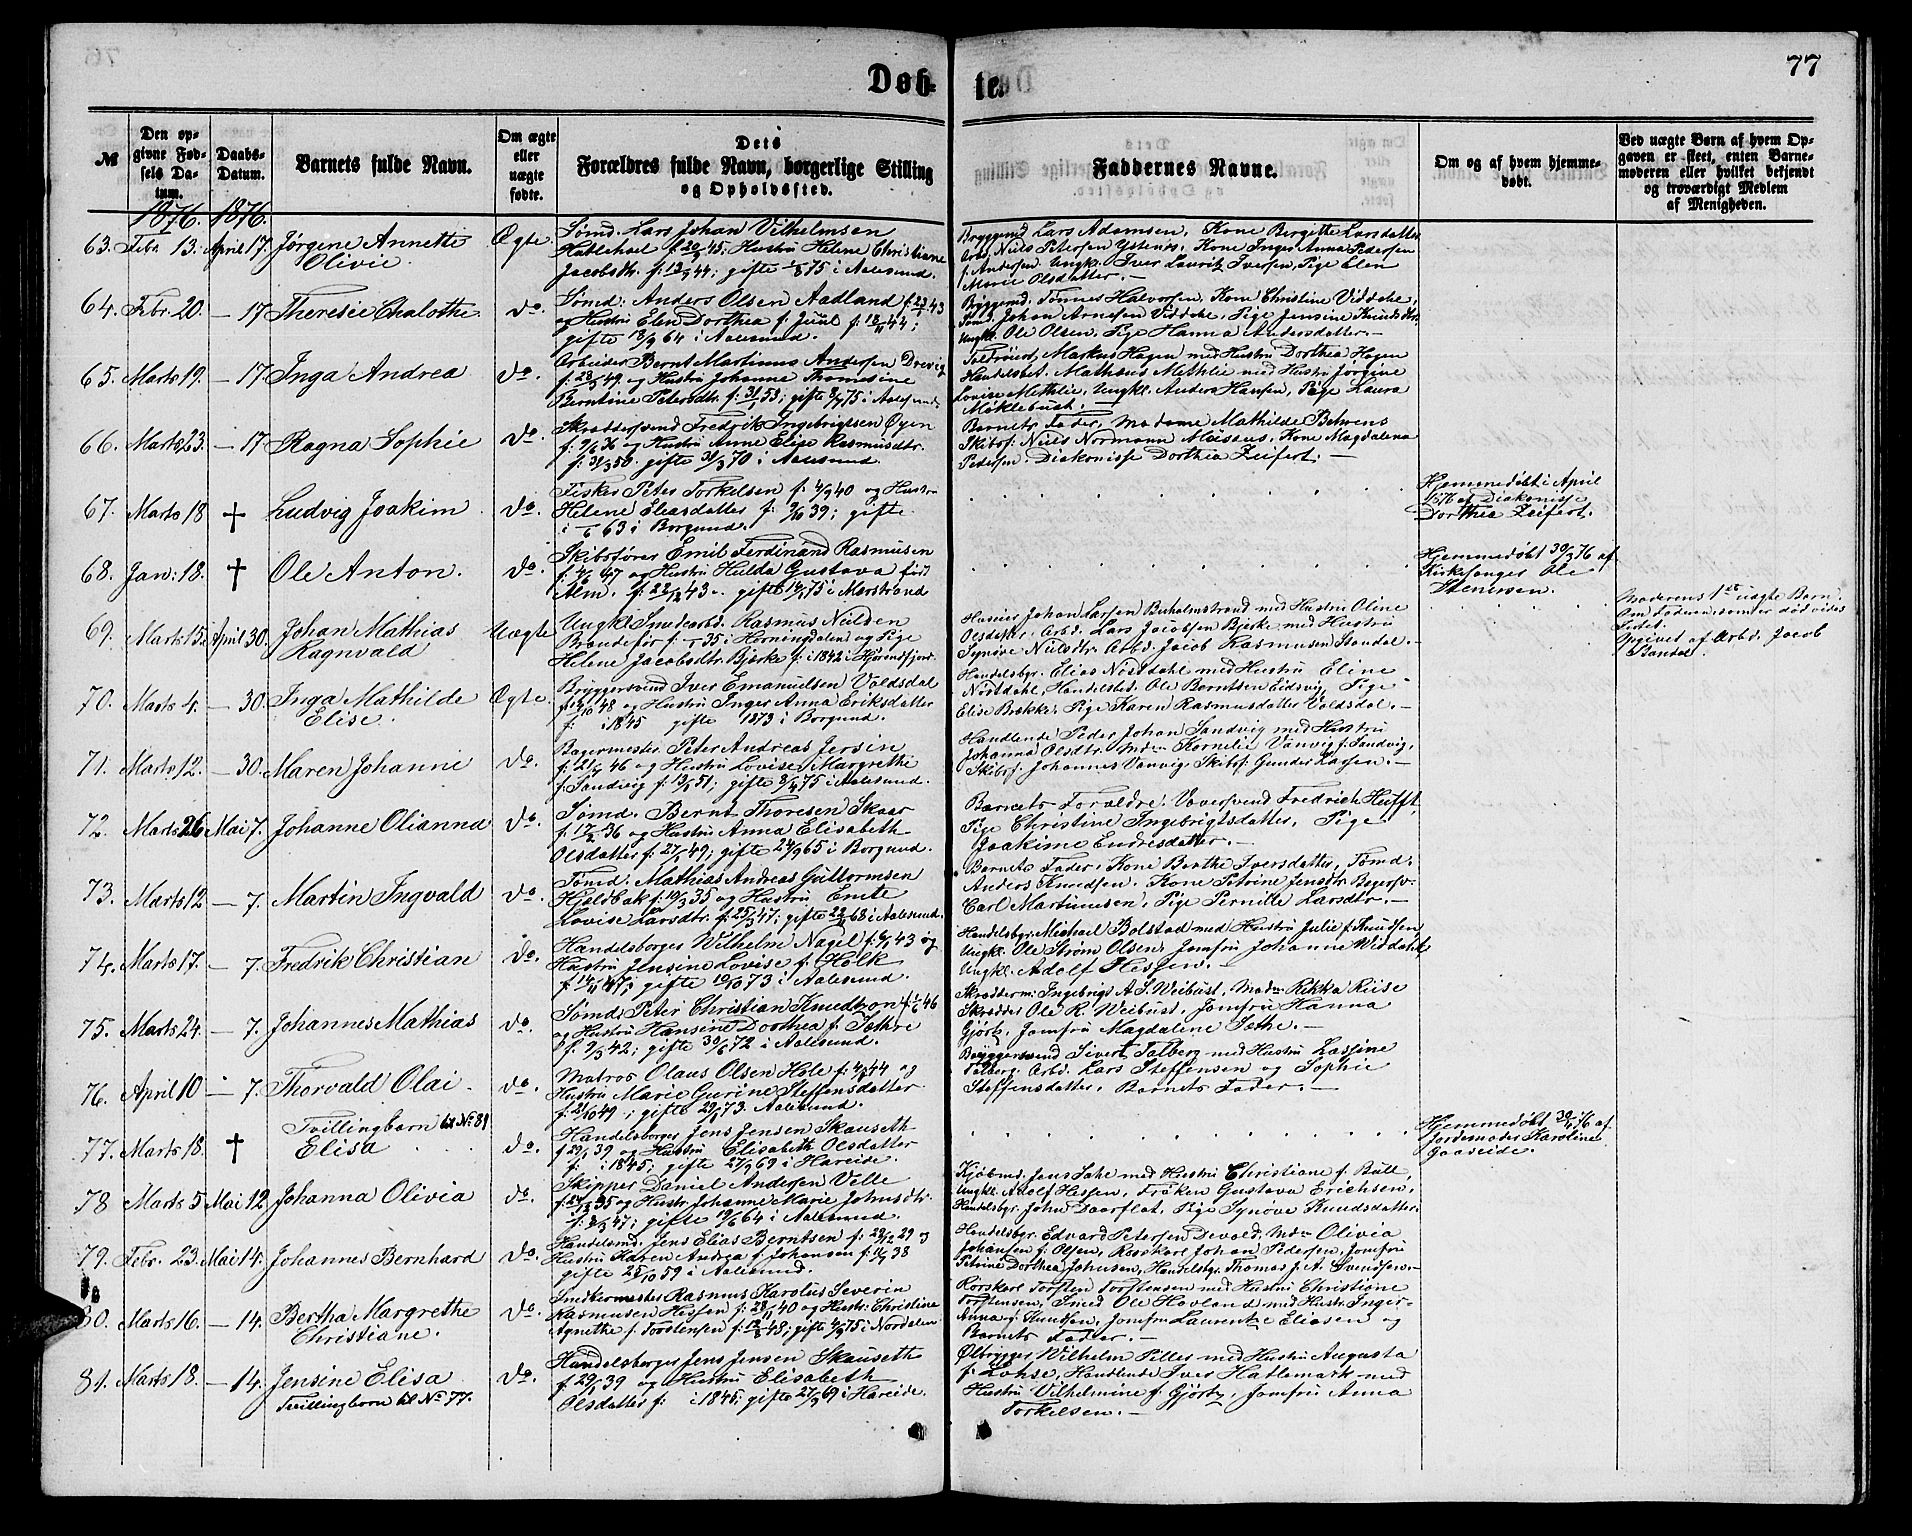 Døb-
te.
77
№
Den op-
givne Fød-
sels Da-
tum.
Daabs-
Datum.
Barnets fulde Navn.
Om ægte
eller
uægte
fødte.
Dets
Forældres fulde Navn, borgerlige Stilling
og Opholdssted.
Faddernes Navne.
Om og af hvem hjemme-
døbt.
Ved uægte Børn af hvem Op-
gaven er skeet, enten Barne-
moderen eller hvilket bekjendt
og troværdigt Medlem
af Menigheden.
1876. 1876.
63. Febr 13. April 17. Jørgine Annette
Olivie.
Ægte
Sømd. Lars Johan Vilhelmsen
Jacobsdt. i Aalesund.
Bryggemd Lars Adamsen, Kone Bergitte Larsdatter
Ungkl. Iver Lauritz Iversen, Pige Elen
Marie Olsdatter.—
64. Febr. 20. — 17 Theresie Chalothe. do.
Sømd: Anders Olsen Aadland
og Hustru Elen Dorthea f. Juul
gifte i Aalesund.
Bryggemd: Tønnes Halvorsen, Kone Christine Viddche,
Ungkl. Ole Olsen, Pige Hanna Andersdatter.—
65. Marts 19. — 17. Inga Andrea do.
Arbeider Bernt Martinus Andersen Drevig
og Hustru Johanne Thomesine
Berntine Petersdtr. gifte i Aalesund
Markus Hagen med Hustru Dorthea Hagen
Handelsbet. Mathæus Methlie med Hustru Jørgine
Lovise Methlie, Ungkl. Anders Hansen, Pige Laura
Møklebust.—
66. Marts 23. — 17 Ragna Sophie do.
Skræddersvend Fredrik Ingebrigtsen Øyen
f. 9/6 36 og Hustru Anne Elise Rasmusdtr.
f. 31/3 50. gifte 31/3 70 i Aalesund.
Barnets Fader, Madame Mathilde Behrens
Skibsf: Niels Normann Kone Magdalena
Pedersen. Diakonisse Dorthea Zeifert.—
67. Marts 18 † Ludvig Joakim do.
Fisker Peter Torkelsen f. 4/9 40 og Hustru
Helene Eliasdatter f. 9/10 39; gifte
i 63 i Borgund.
Hjemmedøbt i April
1876 af Diakonisse
Dorthea Zeifert.
68. Jan: 18. † Ole Anton. do.
Skibsfører Emil Ferdinand Rasmusen
f. 4/6 47 og Hustru Hulda Gustava født
Alm. f. 22/12 43. gifte i Marstrand
Hjemmedøbt 30/3 76 af
Kirkesanger Ole
Stenersen.
69. Marts 15. April 30. Johan Mathias
Ragnvald
Uægte
Ungkl. Smedearbd. Rasmus Nilsen
i Horningdalen og Pige
Helene Jacobsdtr. Bjerke f. i 1842 i Hjørendfjord
Johan Larsen med Hustru Oline
Olsdtr. Arbd. Lars Jacobsen Bjerke med Hustru
Synøve Nilsdtr. Arbd. Jacob Rasmusen Standal.
Moderens 1ste uægte Barn.
Opgivet af Arbd. Jacob
Standal.
70. Marts 4. — 30. Inga Mathilde
Elise.
Ægte.
Bryggersvend Iver Emanuelsen Voldsdal
og Hustru Inger Anna Eriksdatter
f: i 1845 gifte 1873 i Borgund.
Handelsbgr. Elias Nøstdahl med Hustru Eline
Nøstdahl, Handelsbet. Ole Berntsen Eidsvig, Pige
Elise Brekke. Pige Karen Rasmusdatter Voldsdal.—
71. Marts 12. — 30. Maren Johanne do.
Bagermester Peter Andreas Jersin
f. 21/6 46 og Hustru Lovise Margrethe
f. Sandvig f. 13/1 51; gifte 8/4 75 i Aalesund.
Handlende Peder Johan Sandvig med Hustru
Johanna Olsdtr. Mdm Kornelie Vanvig f. Sandvig,
Skibsf. Johannes Vanvig. Skibsf. Gunder Larsen.—
72. Marts 26 Mai 7. Johanne Olianna do.
Sømd. Bernt Thoresen Skaar
f. 17/2 36 og Hustru Anna Elisabeth
Olsdatter f: gifte 24/9 65 i Borgund.
Barnets Forældre. Væversvend Fredrich Hufft,
Pige Christine Ingebrigtsdatter, Pige
Joakime Endresdatter.—
73. Marts 12 — 7. Martin Ingvald do.
Tømd. Mathias Andreas Guttormsen
Hjeldbak f. 19/3 35 og Hustru Emte
Lovise Larsdtr. gifte i Aalesund.
Barnets Fader, Kone Berthe Iversdatter, Tømd.
Anders Knudsen, Kone Petrine Jensdtr Bagersv.
Carl Martinusen, Pige Pernille Larsdtr.—
74. Marts 17. — 7. Fredrik Christian do.
Handelsborger Wilhelm Nagel f. 6/1 43 og
Hustru Jensine Lovise f. Holk
gifte 10/10 73 i Aalesund.
Handelsbgr. Michael Bolstad med Hustru Julie f. Knudsen,
Ungkl. Ole Strøm Olsen, Jomfru Johanne
Ungkl. Adolf Hessen.—
75. Marts 24. — 7. Johannes Mathias do.
Sømd. Peter Christian Knudtzon
og Hustru Hansine Dorthea f. Sæthre
f. 9/3 42; gifte 30/6 72 i Aalesund.
Skræderm. Ingebrigt A. S. Weibust, Madm Rikka Riise
Skrædder Ole R. Weibust, Jomfru Hanna
Gjørtz, Jomfru Magdalene Sethe.—
76. April 10 — 7. Thorvald Olai. do.
Matros Olaus Olsen Hole f. 4/8 44 og
Hustru Marie Gurine Steffensdatter
f. 21/10 49; gifte 73. Aalesund.
Bryggersvend Sivert Talberg med Hustru Lassine
Talberg. Arbd. Lars Steffensen og Sophie
Steffensdatter, Barnets Fader.—
77. Marts 18. † Tvillingbarn til No 81
Elisa
do.
Handelsborger Jens Jensen Skauseth
f 29/1 39 og Hustru Elisabeth Olsdatter
f: i 1845; gifte 27/9 69 i Hareide.
Hjemmedøbt 76 af
Jordemoder Karoline
Gaaseide.
78 Marts 5 Mai 12. Johanna Olivia do.
Skipper Daniel Andersen Ville
og Hustr. Johanne Marie Johnsdtr.
gifte 19/6 64 i Aalesund.
Kjøbmd. Jens Sahe med Hustru Christiane f. Bull
Ungkl. Adolf Hessen, Frøken Gustava Erichsen,
Handelsbgr. John Daarflat, Pige Synøve Knudsdatter.
79. Febr. 23. Mai 14. Johannes Bernhard do.
Handelsmd. Jens Elias Berntsen f. 22/12 29 og
Hustru Karen Andrea f. Johansen
gifte 25/10 59 i Aalesund.
Handelsbgr. Edvard Petersen Devold, Mdm Olivia
Johansen f: Olsen, Rosskarl Johan Pedersen, Jomfru
Petrine Dorthea Johnsen, Handelsbgr. Thomas f. A. Svendsen.—
80. Marts 16. — 14. Bertha Margrethe
Christiane.
do.
Snedkermester Rasmus Karolus Severin
Rasmusen Hessen og Hustr: Christine
Agnethe f. Torstensen gifte 4/9 75 i Nordalen
Rorskarl Torsten Torstensen med Hustru Christiane
Torstensen, Smed Ole Hovland med Hustr. Inger
Anna f. Knudsen, Jomfru Laurentze Eliasen og
Barnets Fader.—
81. Marts 18. — 14. Jensine Elisa.
Tvillingbarn til No 77.
do.
Handelsborger Jens Jensen Skauseth
f. 29/1 39 og Hustru Elisabeth
Olsdatter f: i 1845; gifte 27/9 69 i Hareide.
Ølbrygger Wilhelm Pilles med Hustru Augusta
f. Lohse, Handlende Iver Hatlemark med
Hustru Vilhelmine f. Gjørtz, Jomfru Anna
Torkelsen.—